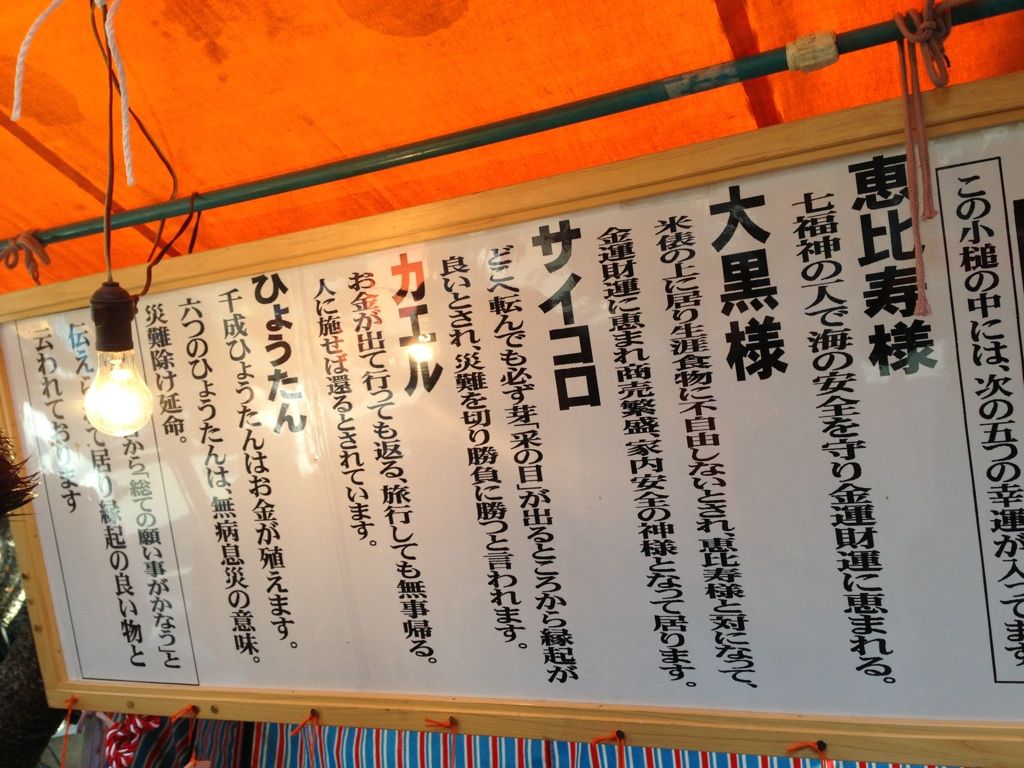 この小槌の中には、次の五つの幸運が入ってます
恵比寿様
七福神の一人で海の安全を守り金運財運に恵まれる。
大黒様
米俵の上に居り生涯食物に不自由しないとされ、恵比寿様と対になって、
金運財運に恵まれ商売繁盛、家内安全の神様となって居ります。
サイコロ
どこへ転んでも必ず芽「采の目」が出るところから縁起が
良いとされ、災難を切り勝負に勝つと言われます。
カエル
お金が出て行っても返る、旅行しても無事帰る。
人に施せば還るとされています。
ひょうたん
千成ひょうたんはお金が殖えます。
六つのひょうたんは、無病息災の意味。
災難除け延命。
から総ての願い事がかなう」と
伝え て居り縁起の良い物と
云われております